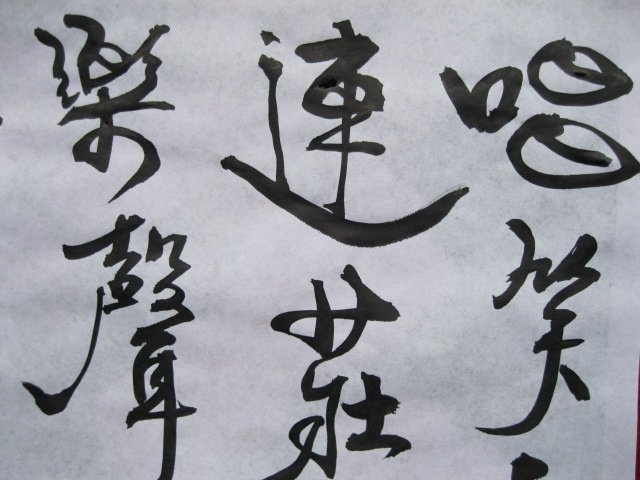 唱笑
連莊
樂聲